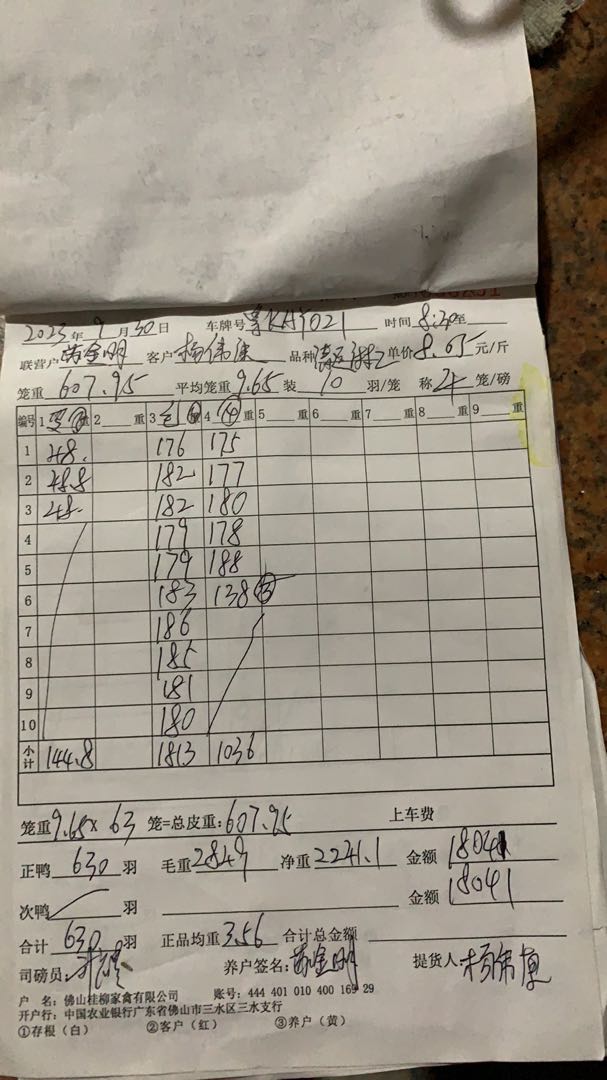 2023年9月30日 车牌号 时间 8:30至
联营户 苏金明 客户 杨伟 品种 清远 单价 8.05元/斤
笼重 607.95 平均笼重 9.65 装 10 羽/笼 称 4 笼/磅
编号 1 重 2 重 3 重 4 ④ 重 5 重 6 重 7 重 8 重 9 重
1 48. 176 175
2 48.8 182 177
3 48. 182 180
4 179 178
5 179 188
6 183 138 ③
7 186
8 185
9 181
10 180
小计 144.8 1813 1036
笼重 9.65×63 笼=总皮重: 607.95 上车费
正鸭 630 羽 毛重 2849 净重 2241.1 金额 18041
次鸭 羽 金额 18041
合计 630 羽 正品均重 3.56 合计总金额
司磅员: 养户签名: 苏金明 提货人: 杨伟
户 名: 佛山桂柳家禽有限公司 账号: 444 401 010 400 169 29
开户行: 中国农业银行广东省佛山市三水区三水支行
①存根（白） ②客户（红） ③养户（黄）